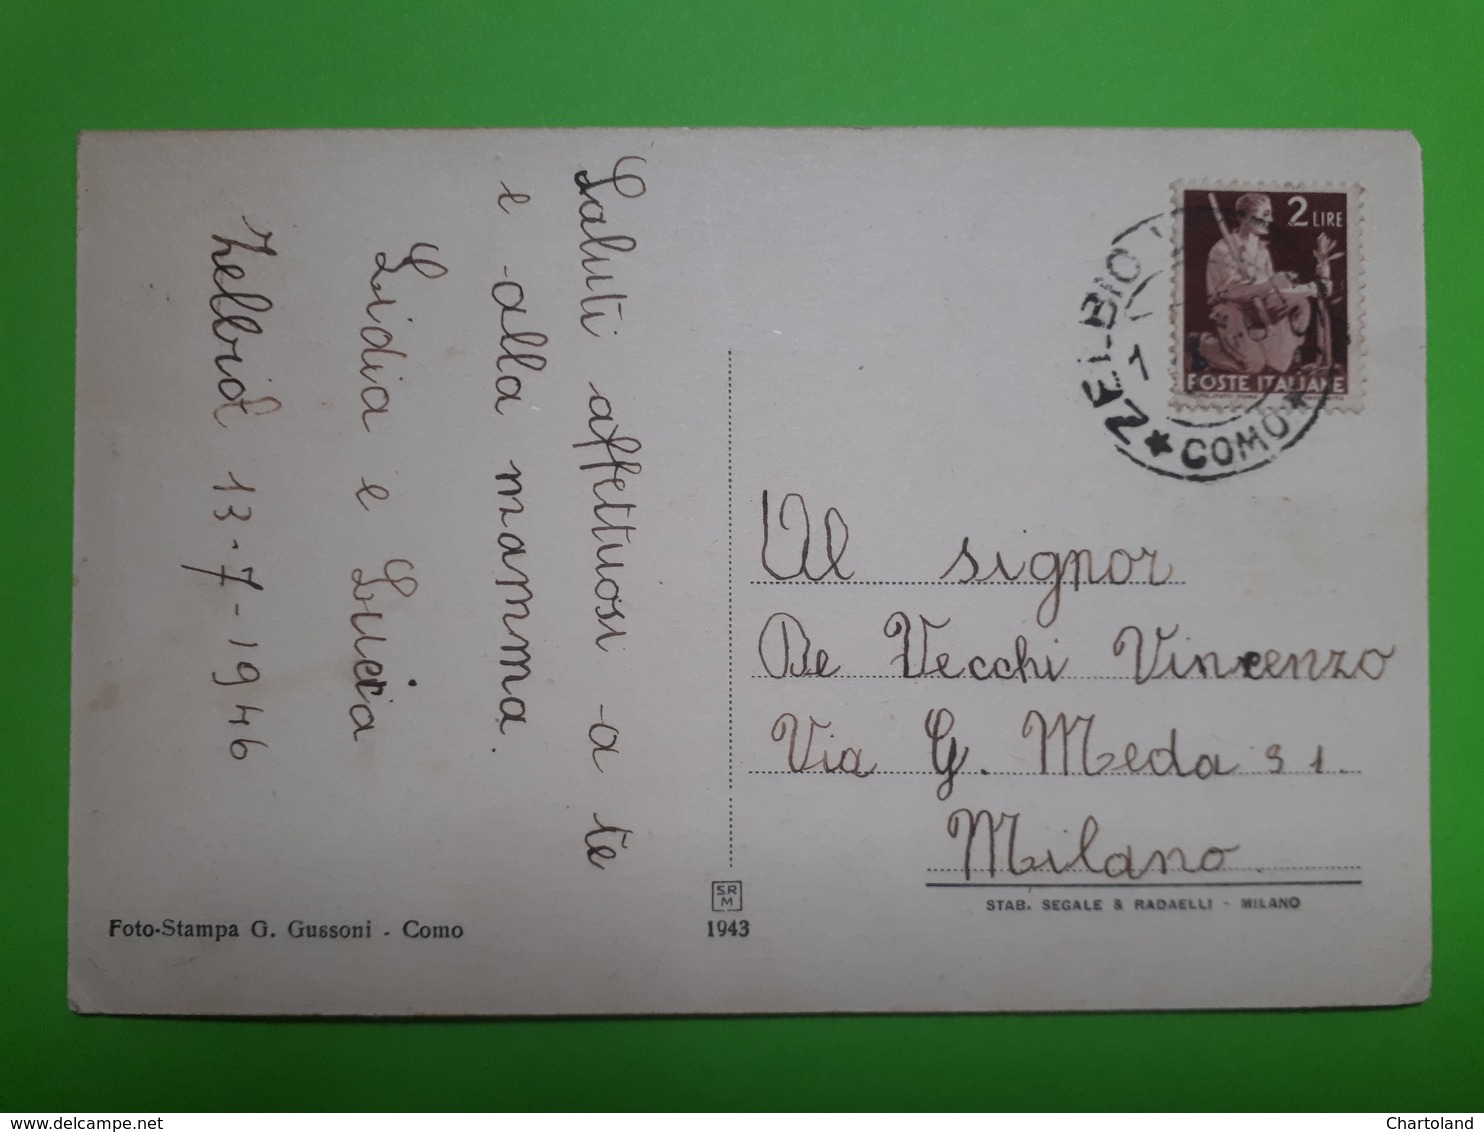 Saluti affettuosi a te
e alla mamma.
Lidia e Lucia
Zelbio 13-7-1946
2 LIRE
POSTE ITALIANE
ZELBIO
1
COMO
Al signor
De Vecchi Vincenzo
Via G. Meda 31.
Milano.
STAB. SEGALE & RADAELLI - MILANO
SR
M
1943
Foto-Stampa G. Gussoni - Como
delcampe.net
Chartoland